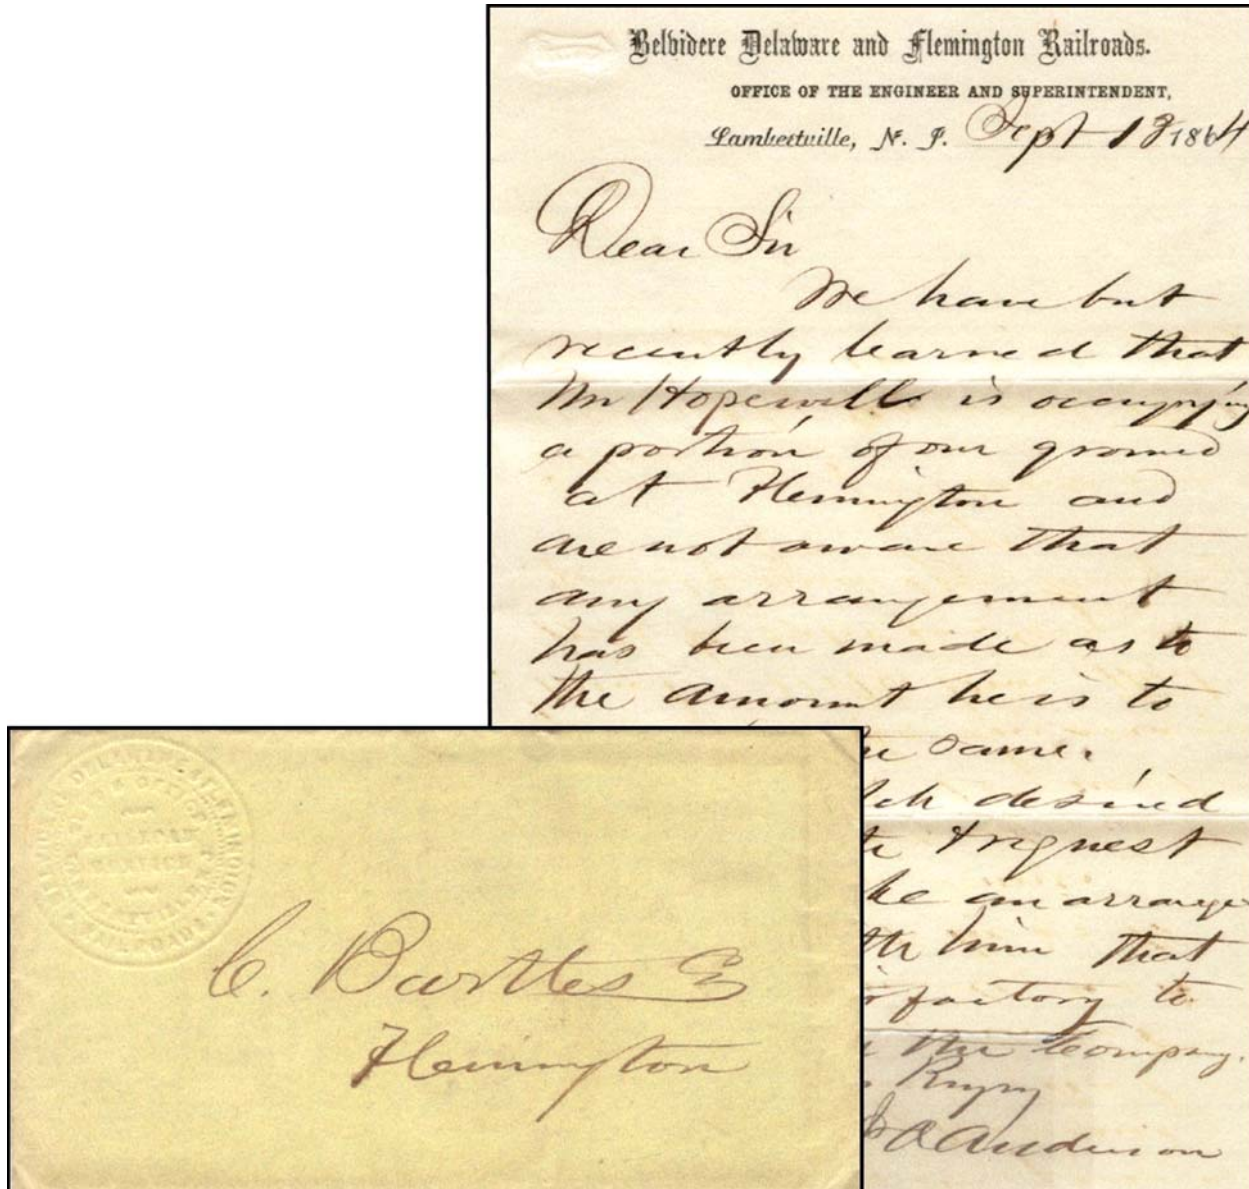 Belvidere Delaware and Flemington Railroads.
OFFICE OF THE ENGINEER AND SUPERINTENDENT,
Lambertville, N. J. Sept 18 1864
Dear Sir
We have but
recently learned that
Mr Hopewell is occupying
a portion of our ground
at Flemington and
are not aware that
any arrangement
has been made as to
the amount he is to
same.
desired
request
an arrange
him that
factory to
the Company.
Anderson
RAILROAD
SERVICE
RAILROADS
C. Bartles
Flemington